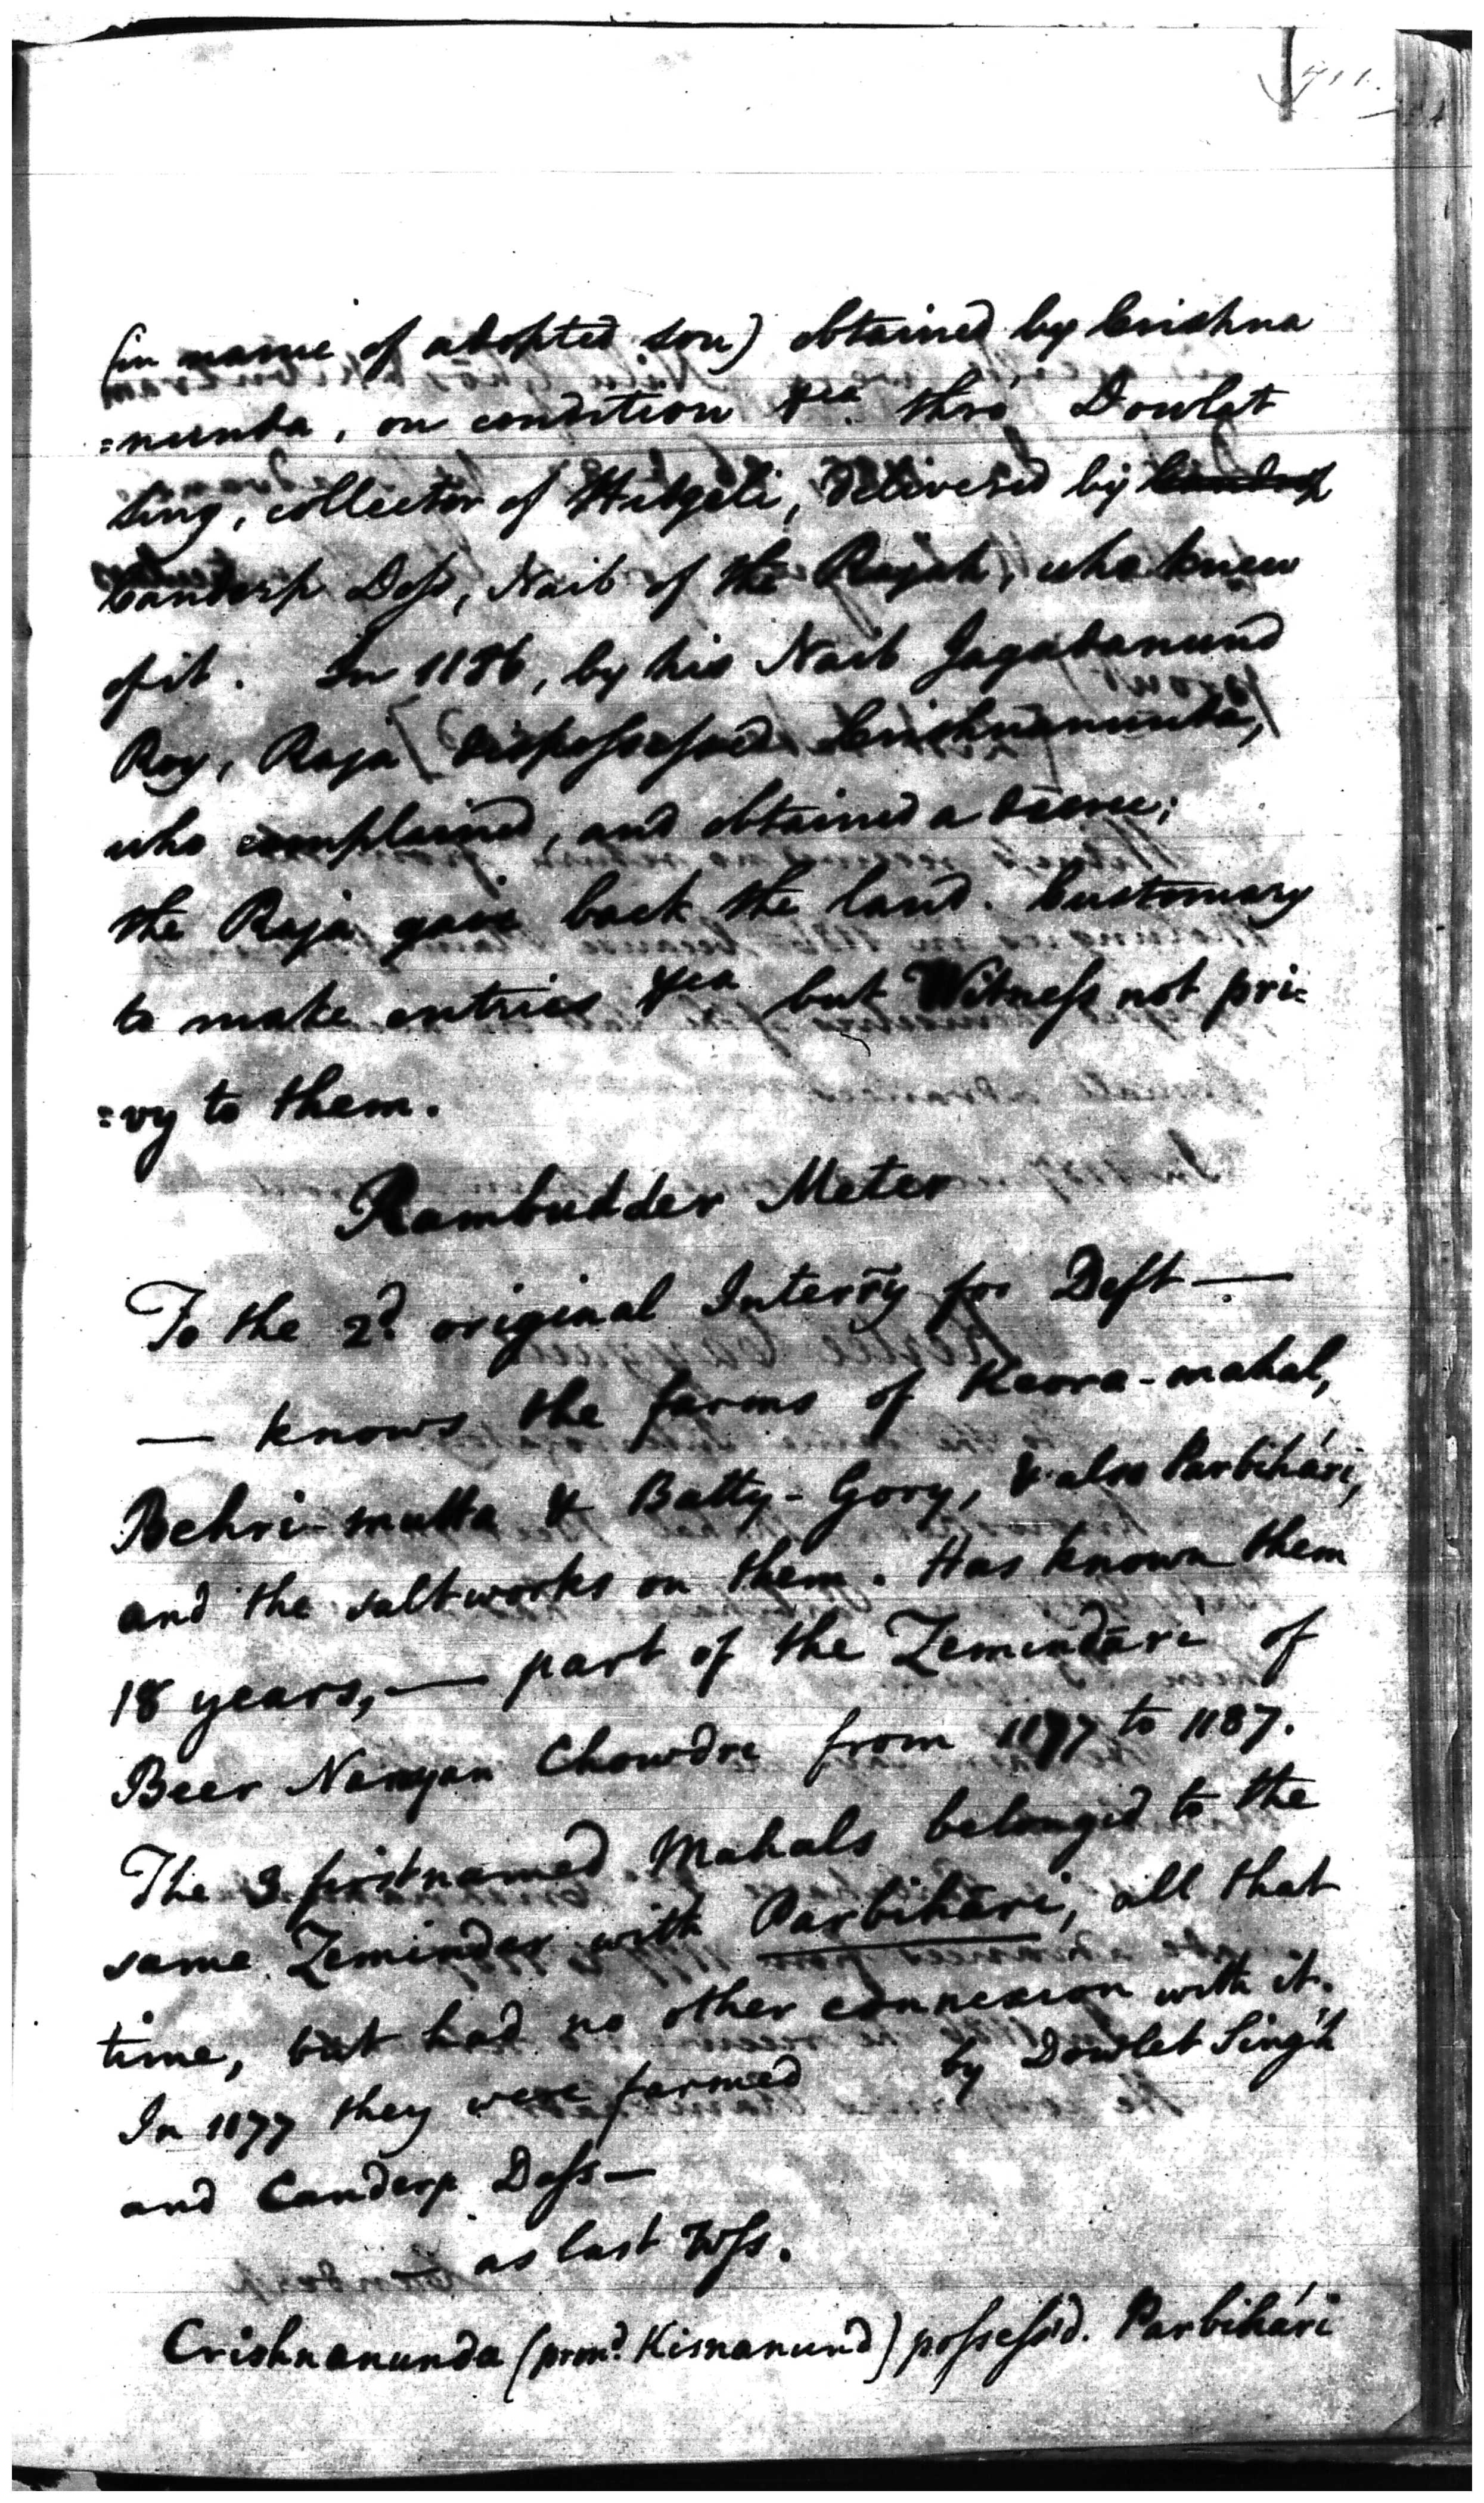 (in name of adopted son) obtained by Crishna
=nunda, on condition &ca. thro' Dowlat
Sing, collector of Hidgeli, delivered by
Canderp Doss, Naib of the Rajah, who knew
of it. In 1186, by his Naib Jagadanund
Roy, Raja dispossessed Crishnanunda,
who complained, and obtained a decree;
the Raja gave back the land. Customary
to make entries &ca but Witness not pri=
=vy to them.
Rambudder Meter
To the 2d. original Interry for Deft —
— knows the farms of Keora-mahal,
Behri-mutta & Batty-Gory, & also Parbihári,
and the saltworks on them. Has known them
18 years, — part of the Zemindāri of
Beer Narayan Chowdre from 1177 to 1187.
The 3 firstnamed Mahals belonged to the
same Zemindar with Parbihāri, all that
time, but had no other connexion with it.
In 1177 they were farmed by Dowlet Singh
and Canderp Doss —
— as last Wss.
Crishnanunda (prond. Kisnanund) possess'd. Parbihári